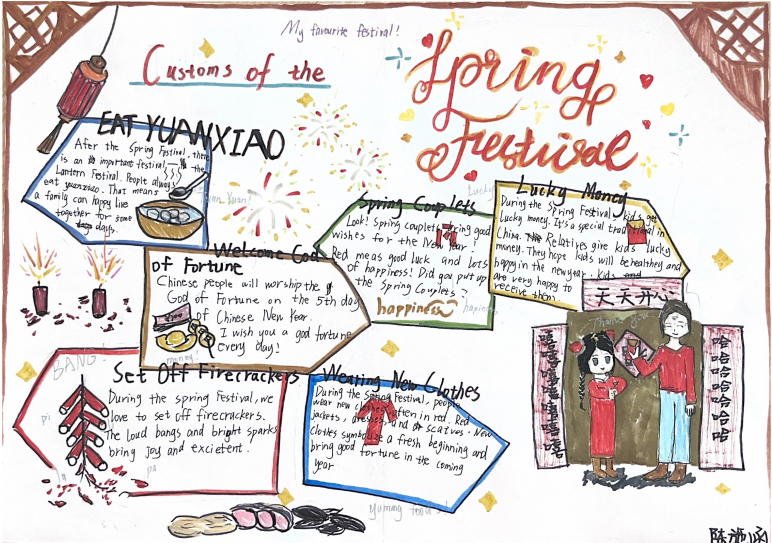 My favourite festival!
Customs of the
Spring
Festival
EAT YUANXIAO
After the Spring Festival, there
is an important festival, — the
Lantern Festival. People always
eat yuanxiao. That means
a family can happy live
together for some
days.
Spring Couplets
Look! Spring couplets bring good
wishes for the New Year!
Red meas good luck and lots
of happiness! Did you put up
the Spring Couplets?
happiness
Lucky
Lucky Money
During the Spring Festival, kids get
Lucky money. It's a special traditional in
China. Relatives give kids lucky
money. They hope kids will be healthey and
happy in the new year. Kids
are very happy to
receive them.
Welcome God
of Fortune
Chinese people will worship the
God of Fortune on the 5th day
of Chinese New Year.
I wish you a good fortune
every day!
money!
天天开心
Thank you
嘻嘻嘻嘻嘻嘻嘻
哈哈哈哈哈哈哈
BANG!
Set Off Firecrackers
During the spring Festival, we
love to set off firecrackers.
The loud bangs and bright sparks
bring joy and excietent.
pa
Wearing New Clothes
During the Spring Festival, people
wear new clothes, often in red. Red
jackets, dresses, and scarves. New
clothes symbolize a fresh beginning and
bring good fortune in the coming
year
Yummy foods!